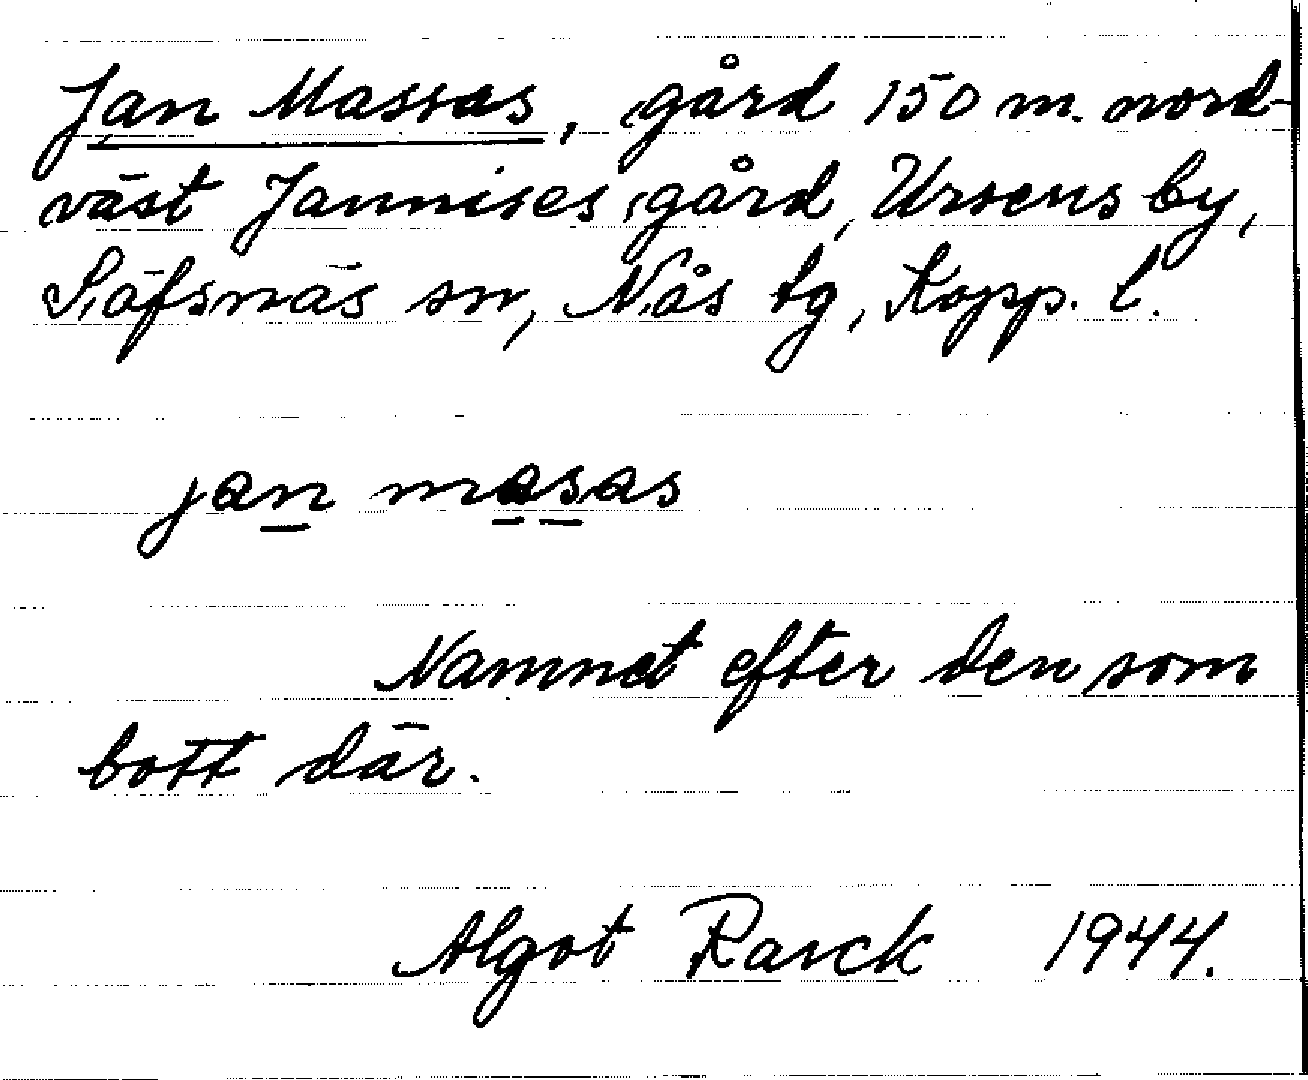 Jan Massas, gård 150 m. nord-
väst Jannises gård, Ursens by,
Säfsnäs sn, Nås tg, Kopp. l.
jan masas
Namnet efter den som
bott där.
Algot Rarck 1944.